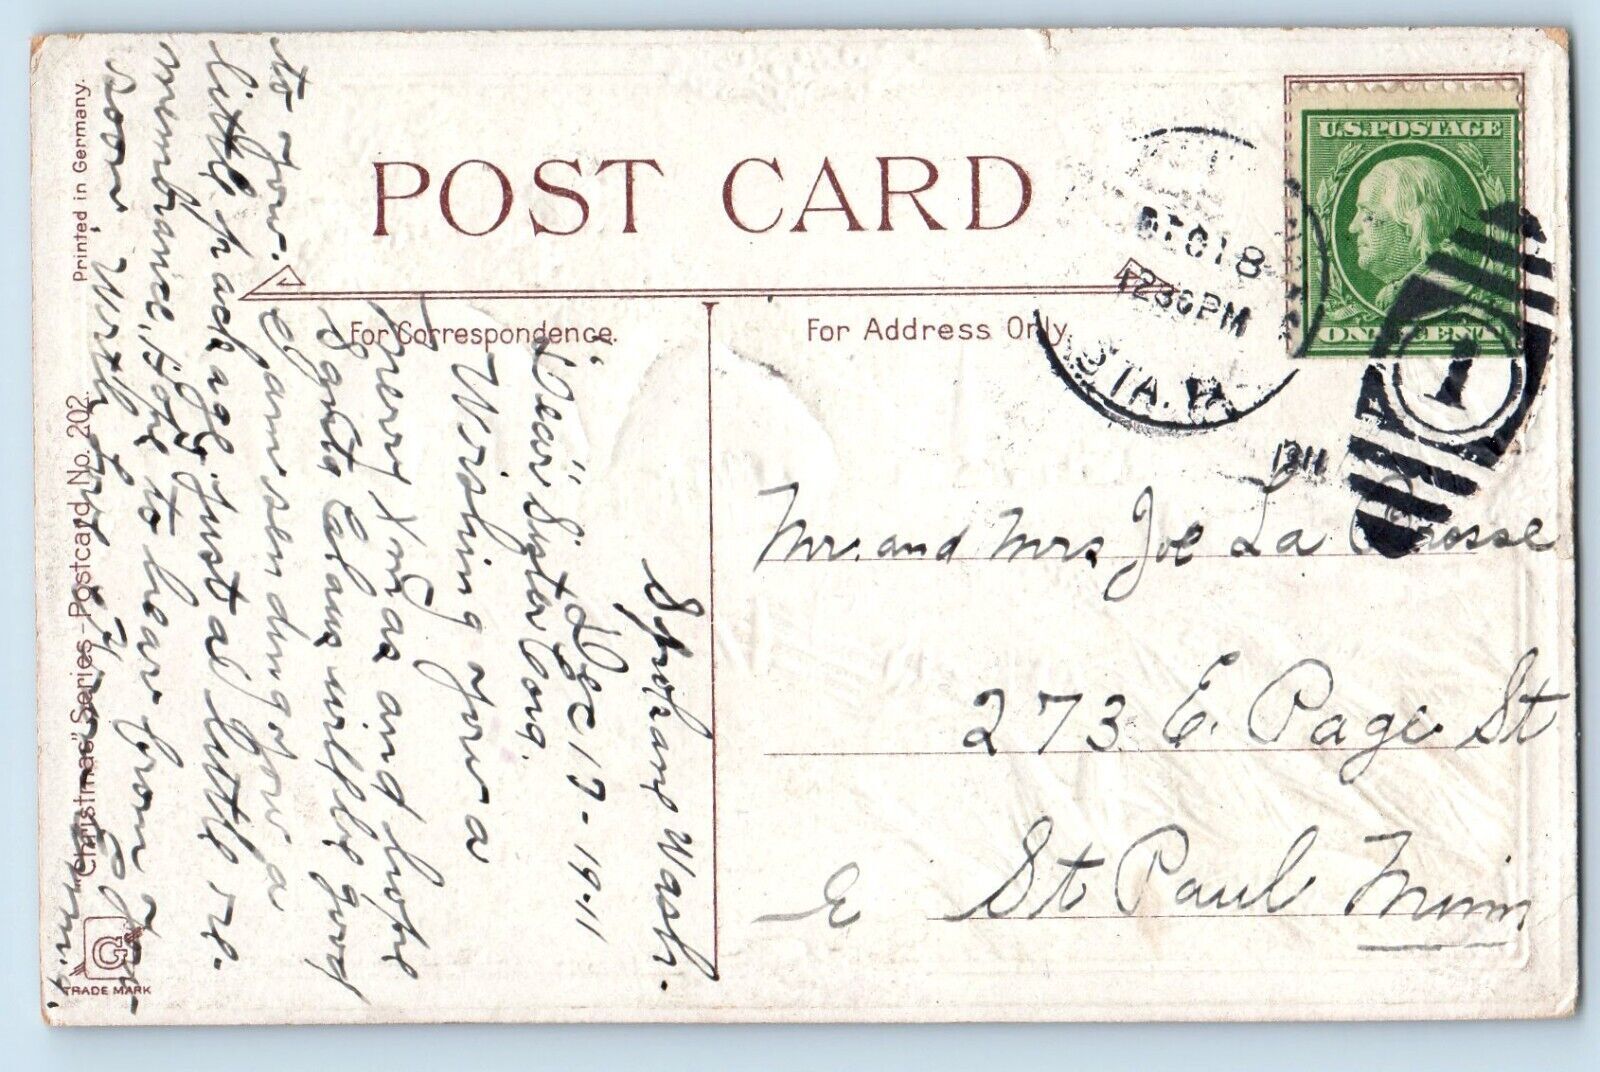 POST CARD
For Correspondence.
For Address Only.
U.S. POSTAGE
ONE CENT
DEC 18
1230 PM
STA. A
1911
1
Spokane Wash.
Dec 17 - 1911
"Dear" Sister Cong.
Wishing you a
merry Xmas and hope
Santa Claus will be good
to you. I am sending you a
little package just a little re-
membrance, Hope to hear from you
soon, With love
Mr. and Mrs Joe La Crosse
273 E. Page St
E St Paul Minn
Printed in Germany.
"Christmas" Series - Postcard No. 202.
G
TRADE MARK